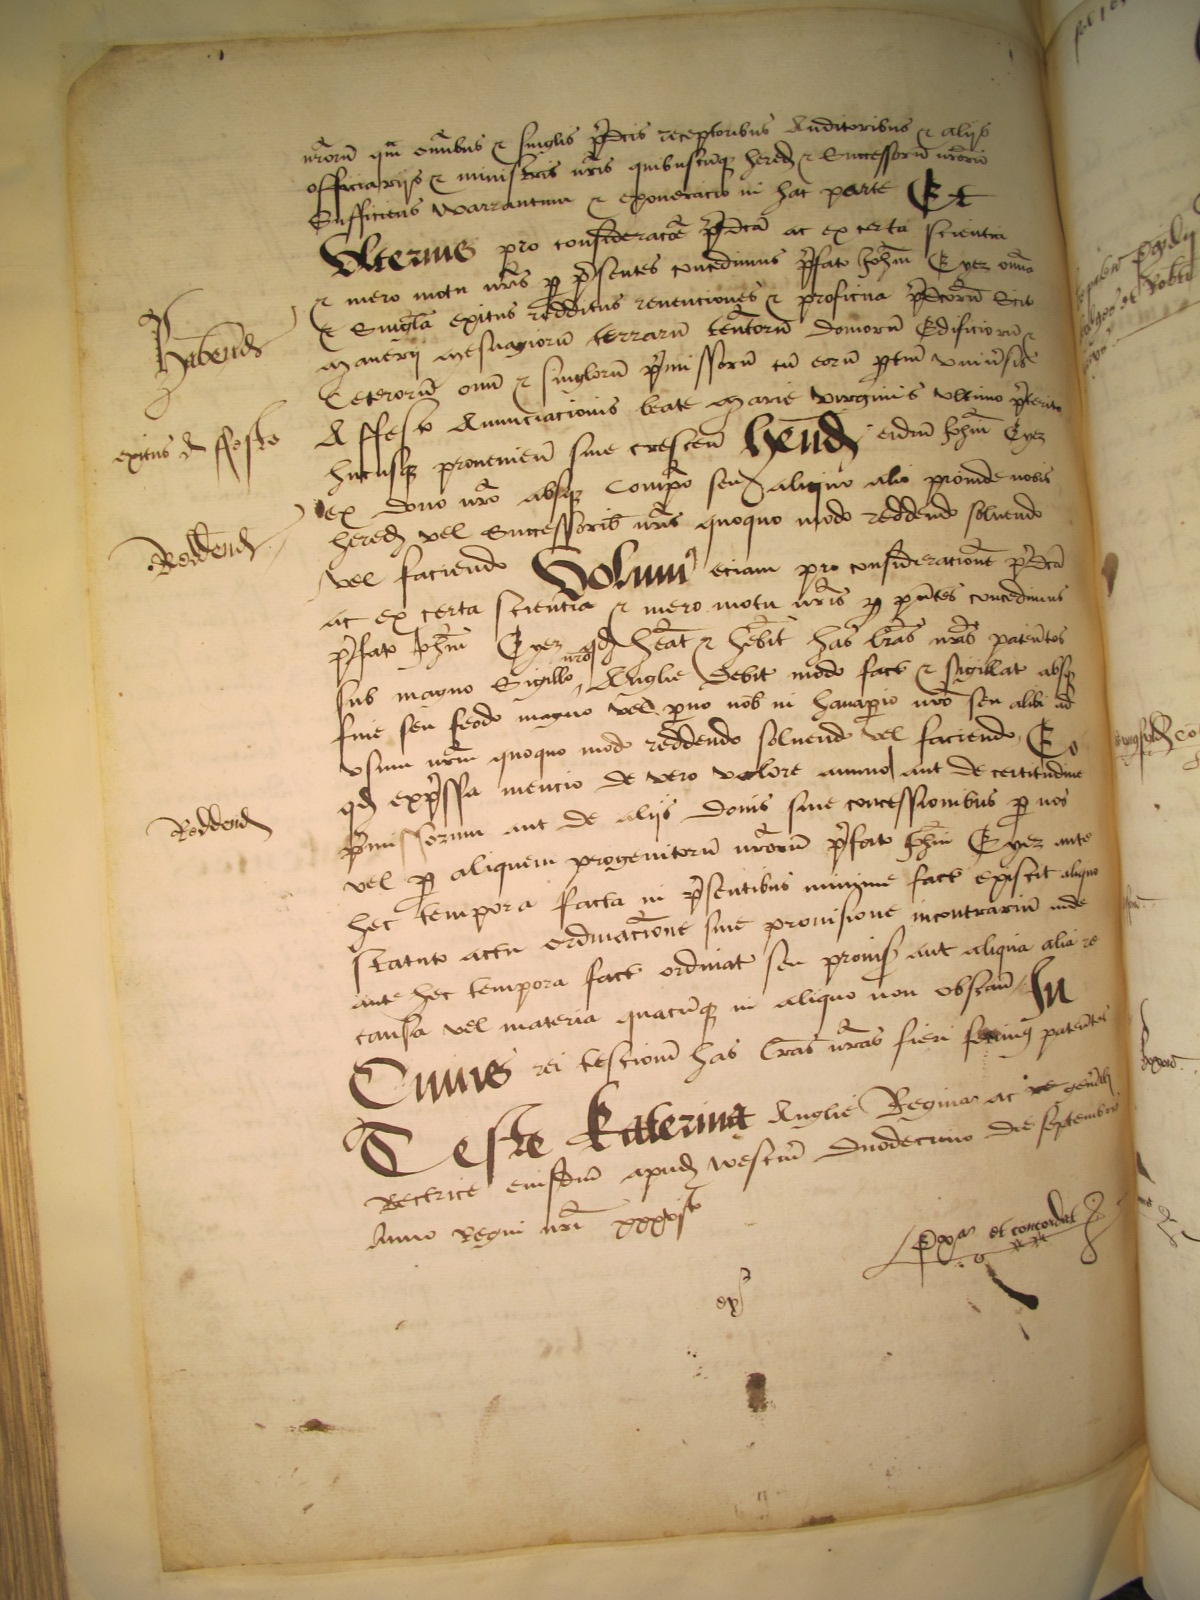 nr̄orū qm̄ om̄ibus & singlis p̄dcīs receptoribus Auditoribus & aliis
officiariis & ministris nr̄is quibuscūq hered & Successorū nr̄orū
Sufficiens Warrantum & exoneracio in hac parte Et
Ulterius pro consideracōe p̄dcā ac ex certa scientia
& mero motu nr̄is p p̄sentes concedimus p̄fato Joh̄i Eyer om̄ia
& Singl̄a exitus redditus revenciones & proficua p̄dcōrū Scit
Manerij Mesuagiorū terrarū ten̄torū domorū Edificiorū &
Ceterorū om̄i & singlorū p̄missorū cū eorū p̄tin̄ univ̄sis
Habend
A ffesto Annunciacionis beate Marie Virginis ultimo p̄terito
exitus A ffesto
hucusq provenien̄ sive crescen̄ Hēnd eidm̄ Joh̄i Eyer
ex dono nr̄o absq Compo seu aliquo alio proinde nobis
hered vel Successorib nr̄is quoquo modo reddendo solvendo
Reddend
vel faciendo Volum eciam pro consideracione p̄dcā
ac ex certa scientia & mero motu nr̄is p pn̄tes concedimus
p̄fato Joh̄i Eyer qd hēat & hēbit has lr̄as nr̄as patentes
sub magno Sigillo nr̄o Anglie debit modo fact & sigillat absq
fine seu feodo magno vel pvo nob in hanapio nr̄o seu alibi ad
usum nr̄m quoquo modo reddendo solvendo vel faciendo Eo
Reddend
qd exp̄ssa mencio de vero valore annuo aut de certitudine
p̄missorum aut de aliis donis sive concessionibus p nos
vel p aliquem progenitorū nr̄orū p̄fato Joh̄i Eyer ante
hec tempora facta in p̄sentibus minime fact existit aliquo
statuto actu ordinacione sive provisione incontrariū inde
ante hec tempora fact ordinat seu provis aut aliqua alia re
causa vel materia quacūq in aliquo non obstan̄ In
Cuius rei testimoniū has lr̄as nr̄as fieri fecimus patentes
Teste Katerina Anglie Regina ac generali
Rectrice eiusdm̄ apud Westm̄ Duodecimo die Septembris
Anno Regni nr̄i xxxvjto
Exr et concordat
ex